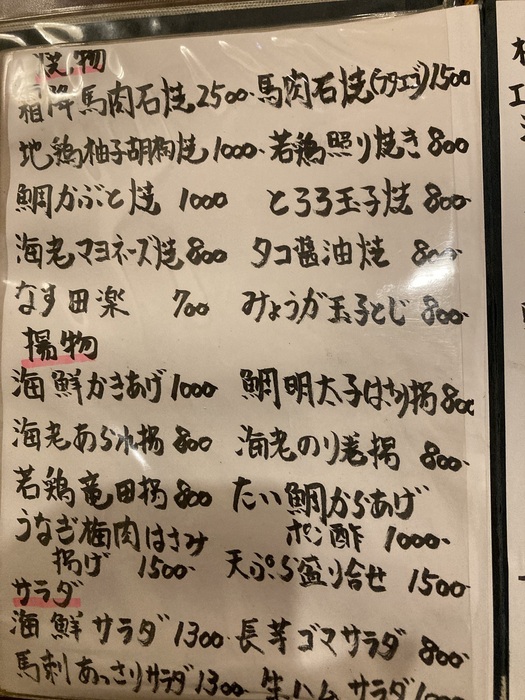 焼物
霜降馬肉石焼 2500 馬肉石焼(フタエゴ) 1500
地鶏柚子胡椒焼 1000 若鶏照り焼き 800
鯛かぶと焼 1000 とろろ玉子焼 800
海老マヨネーズ焼 800 タコ醤油焼 800
なす田楽 700 みょうが玉子とじ 800
揚物
海鮮かきあげ 1000 鯛明太子はさみ揚 800
海老あられ揚 800 海老のり巻揚 800
若鶏竜田揚 800 たい鯛からあげ
うなぎ梅肉はさみ ポン酢 1000
揚げ 1500 天ぷら盛り合せ 1500
サラダ
海鮮サラダ 1300 長芋ゴマサラダ 800
馬刺あっさりサラダ 1300 生ハムサラダ